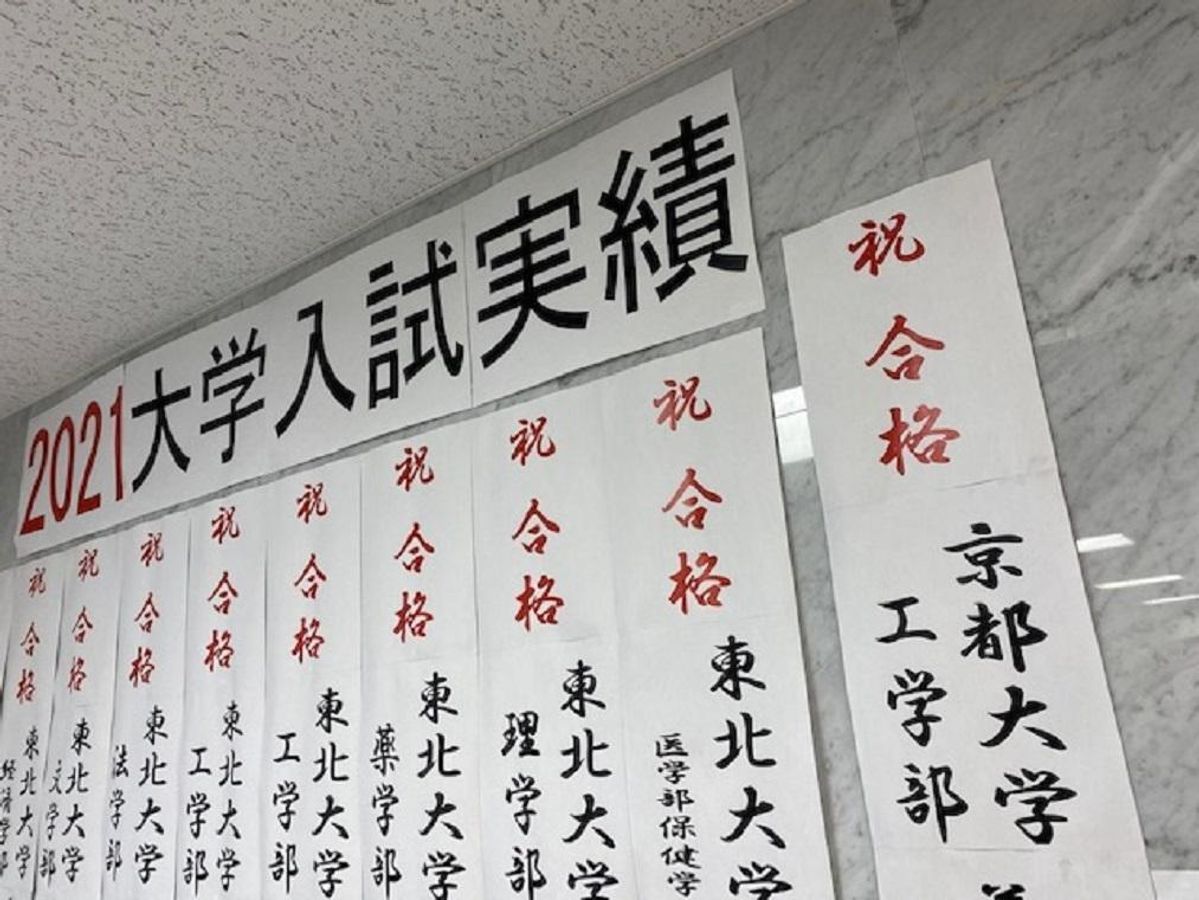 2021大学入試実績
祝合格
京都大学
工学部
祝合格
東北大学
医学部保健学
祝合格
東北大学
理学部
祝合格
東北大学
薬学部
祝合格
東北大学
工学部
祝合格
東北大学
工学部
祝合格
東北大学
法学部
祝合格
東北大学
文学部
祝合格
東北大学
経済学部